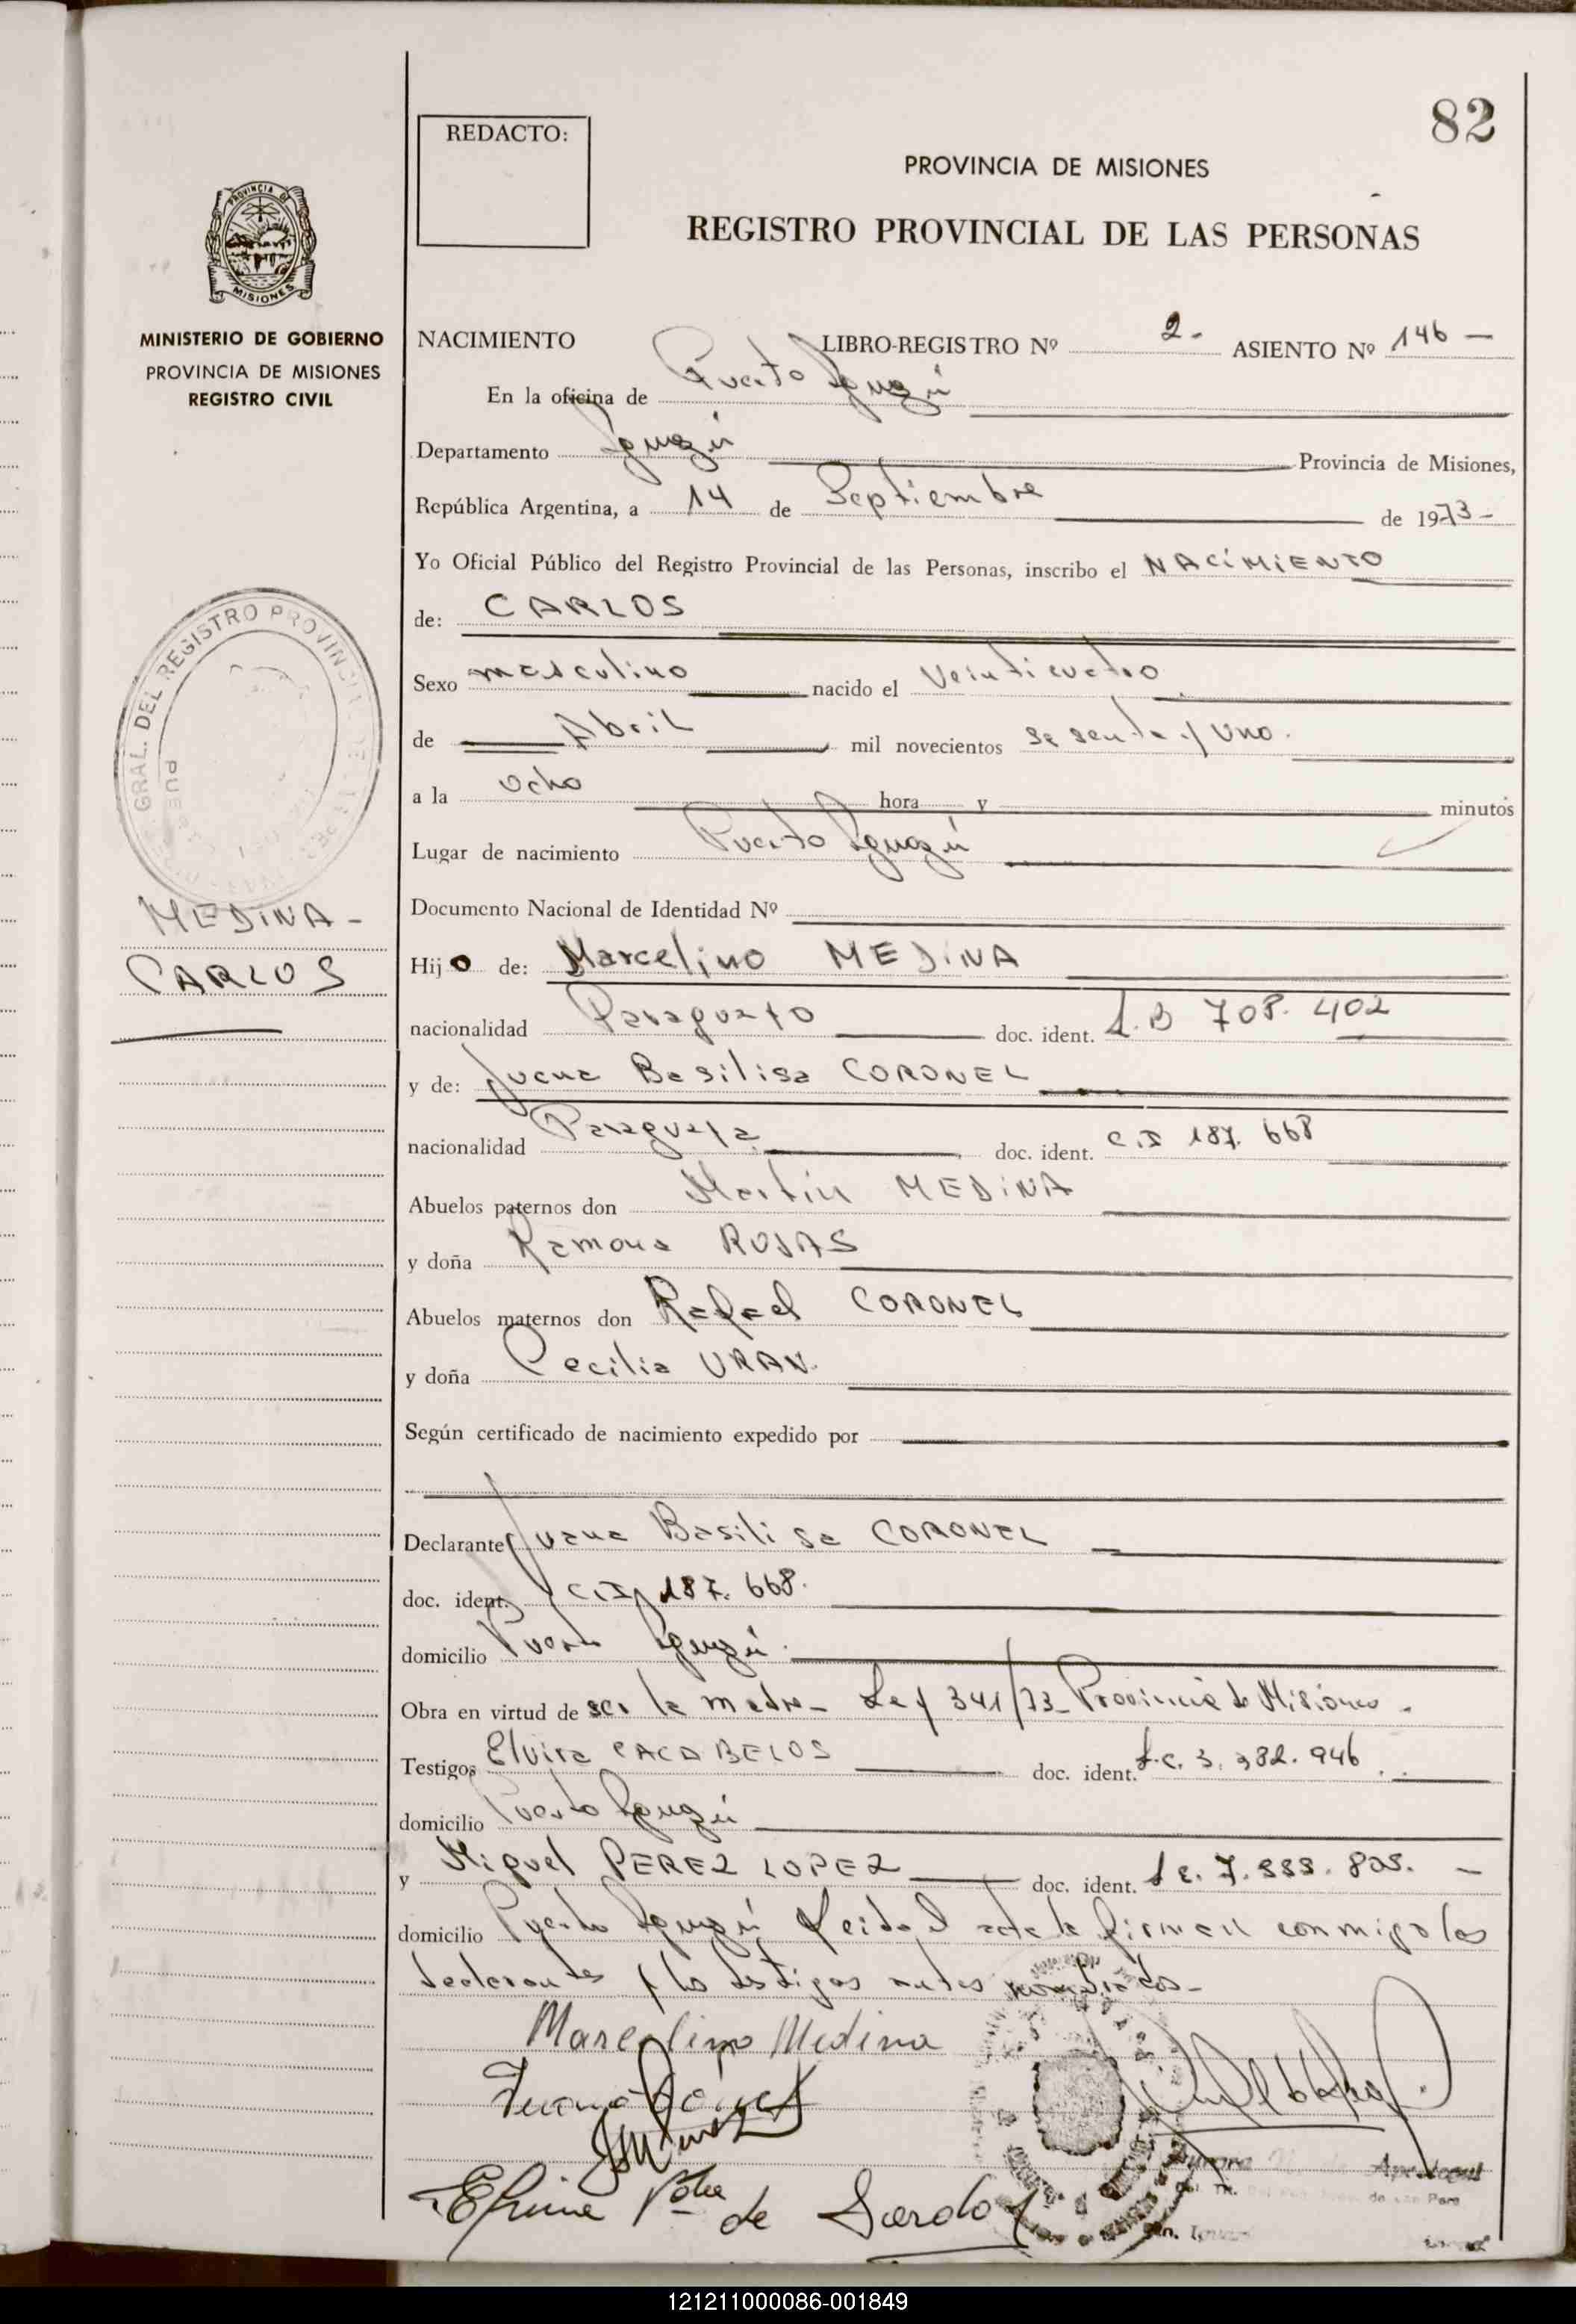 82
REDACTO:
PROVINCIA DE MISIONES
REGISTRO PROVINCIAL DE LAS PERSONAS
PROVINCIA DE
MISIONES
MINISTERIO DE GOBIERNO
PROVINCIA DE MISIONES
REGISTRO CIVIL
NACIMIENTO LIBRO-REGISTRO Nº 2- ASIENTO Nº 146 —
En la oficina de Puerto Iguazú
Departamento Iguazú Provincia de Misiones,
República Argentina, a 14 de Septiembre de 1973-
Yo Oficial Público del Registro Provincial de las Personas, inscribo el NACIMIENTO
de: CARLOS
Sexo masculino nacido el Veinticuatro
de Abril mil novecientos sesenta y uno.
a la ocho hora y minutos
Lugar de nacimiento Puerto Iguazú
GRAL. DEL REGISTRO PROVINCIAL DE
MEDINA -
CARLOS
Documento Nacional de Identidad Nº
Hijo de: Marcelino MEDINA
nacionalidad Paraguayo doc. ident. L.B 708.402
y de: Juana Basilisa CORONEL
nacionalidad Paraguaya doc. ident. C.I 187.668
Abuelos paternos don Martín MEDINA
y doña Ramona ROJAS
Abuelos maternos don Rafael CORONEL
y doña Cecilia URAN.
Según certificado de nacimiento expedido por
Declarante Juana Basilisa CORONEL
doc. ident. C.I 187.668.
domicilio Puerto Iguazú.
Obra en virtud de ser la madre- Ley 341/73- Provincia de Misiones.
Testigos Elvira CACABELOS doc. ident. L.C. 3.382.946
domicilio Puerto Iguazú
y Miguel PEREZ LOPEZ doc. ident. L.E. 7.
domicilio Puerto Iguazú Leida el acta la firman conmigo los
declarantes y los testigos antes nombrados-
Marcelino Medina
de
121211000086-001849